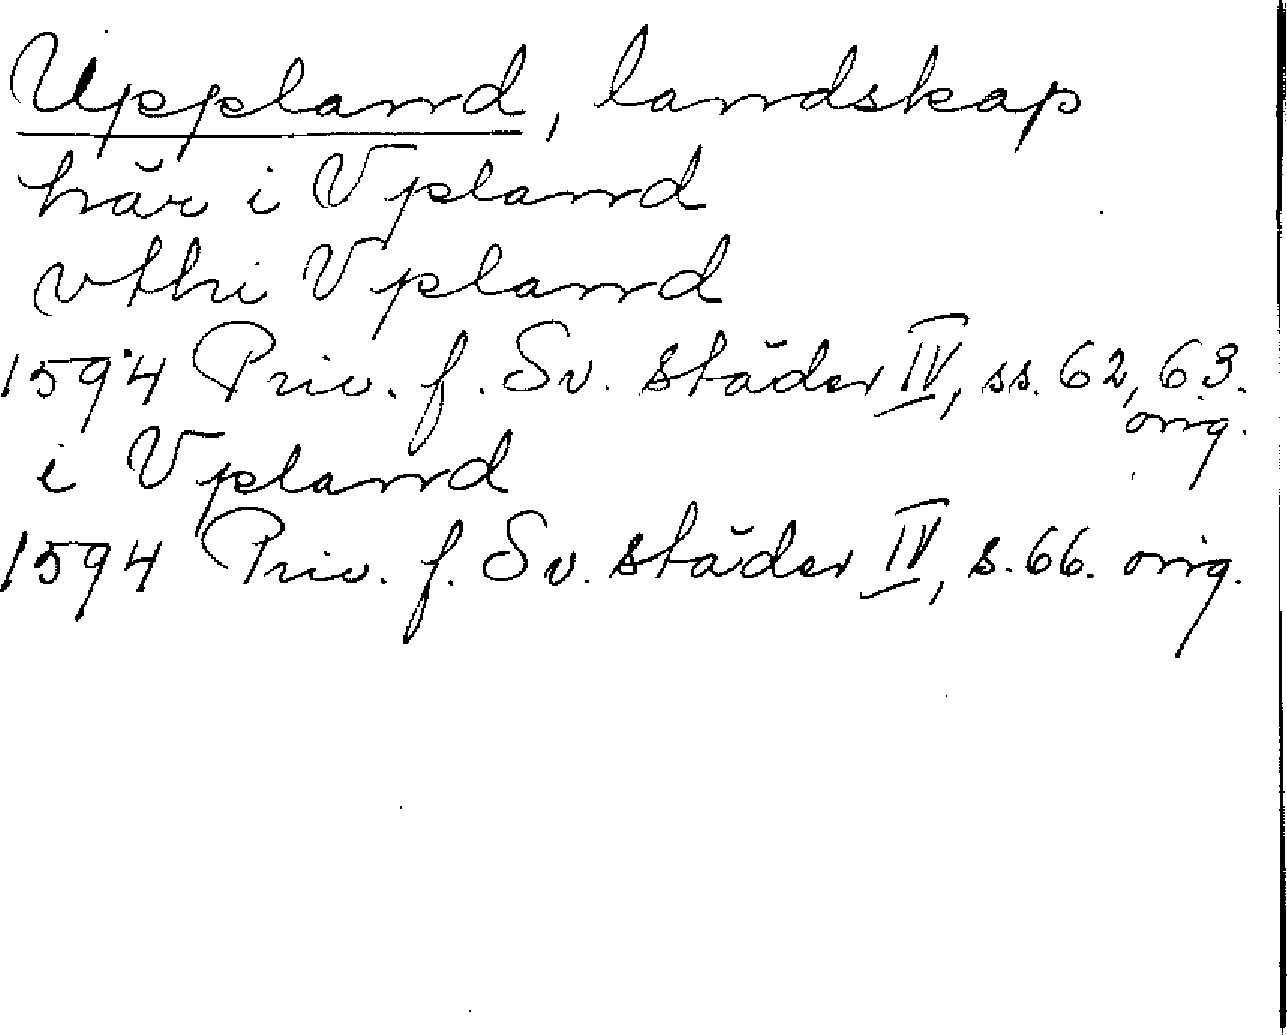 Uppland, landskap
här i Vpland
vthi Vpland
1594 Priv. f. Sv. städer IV, ss. 62, 63.
orig.
i Vpland
1594 Priv. f. Sv. städer IV, s. 66. orig.